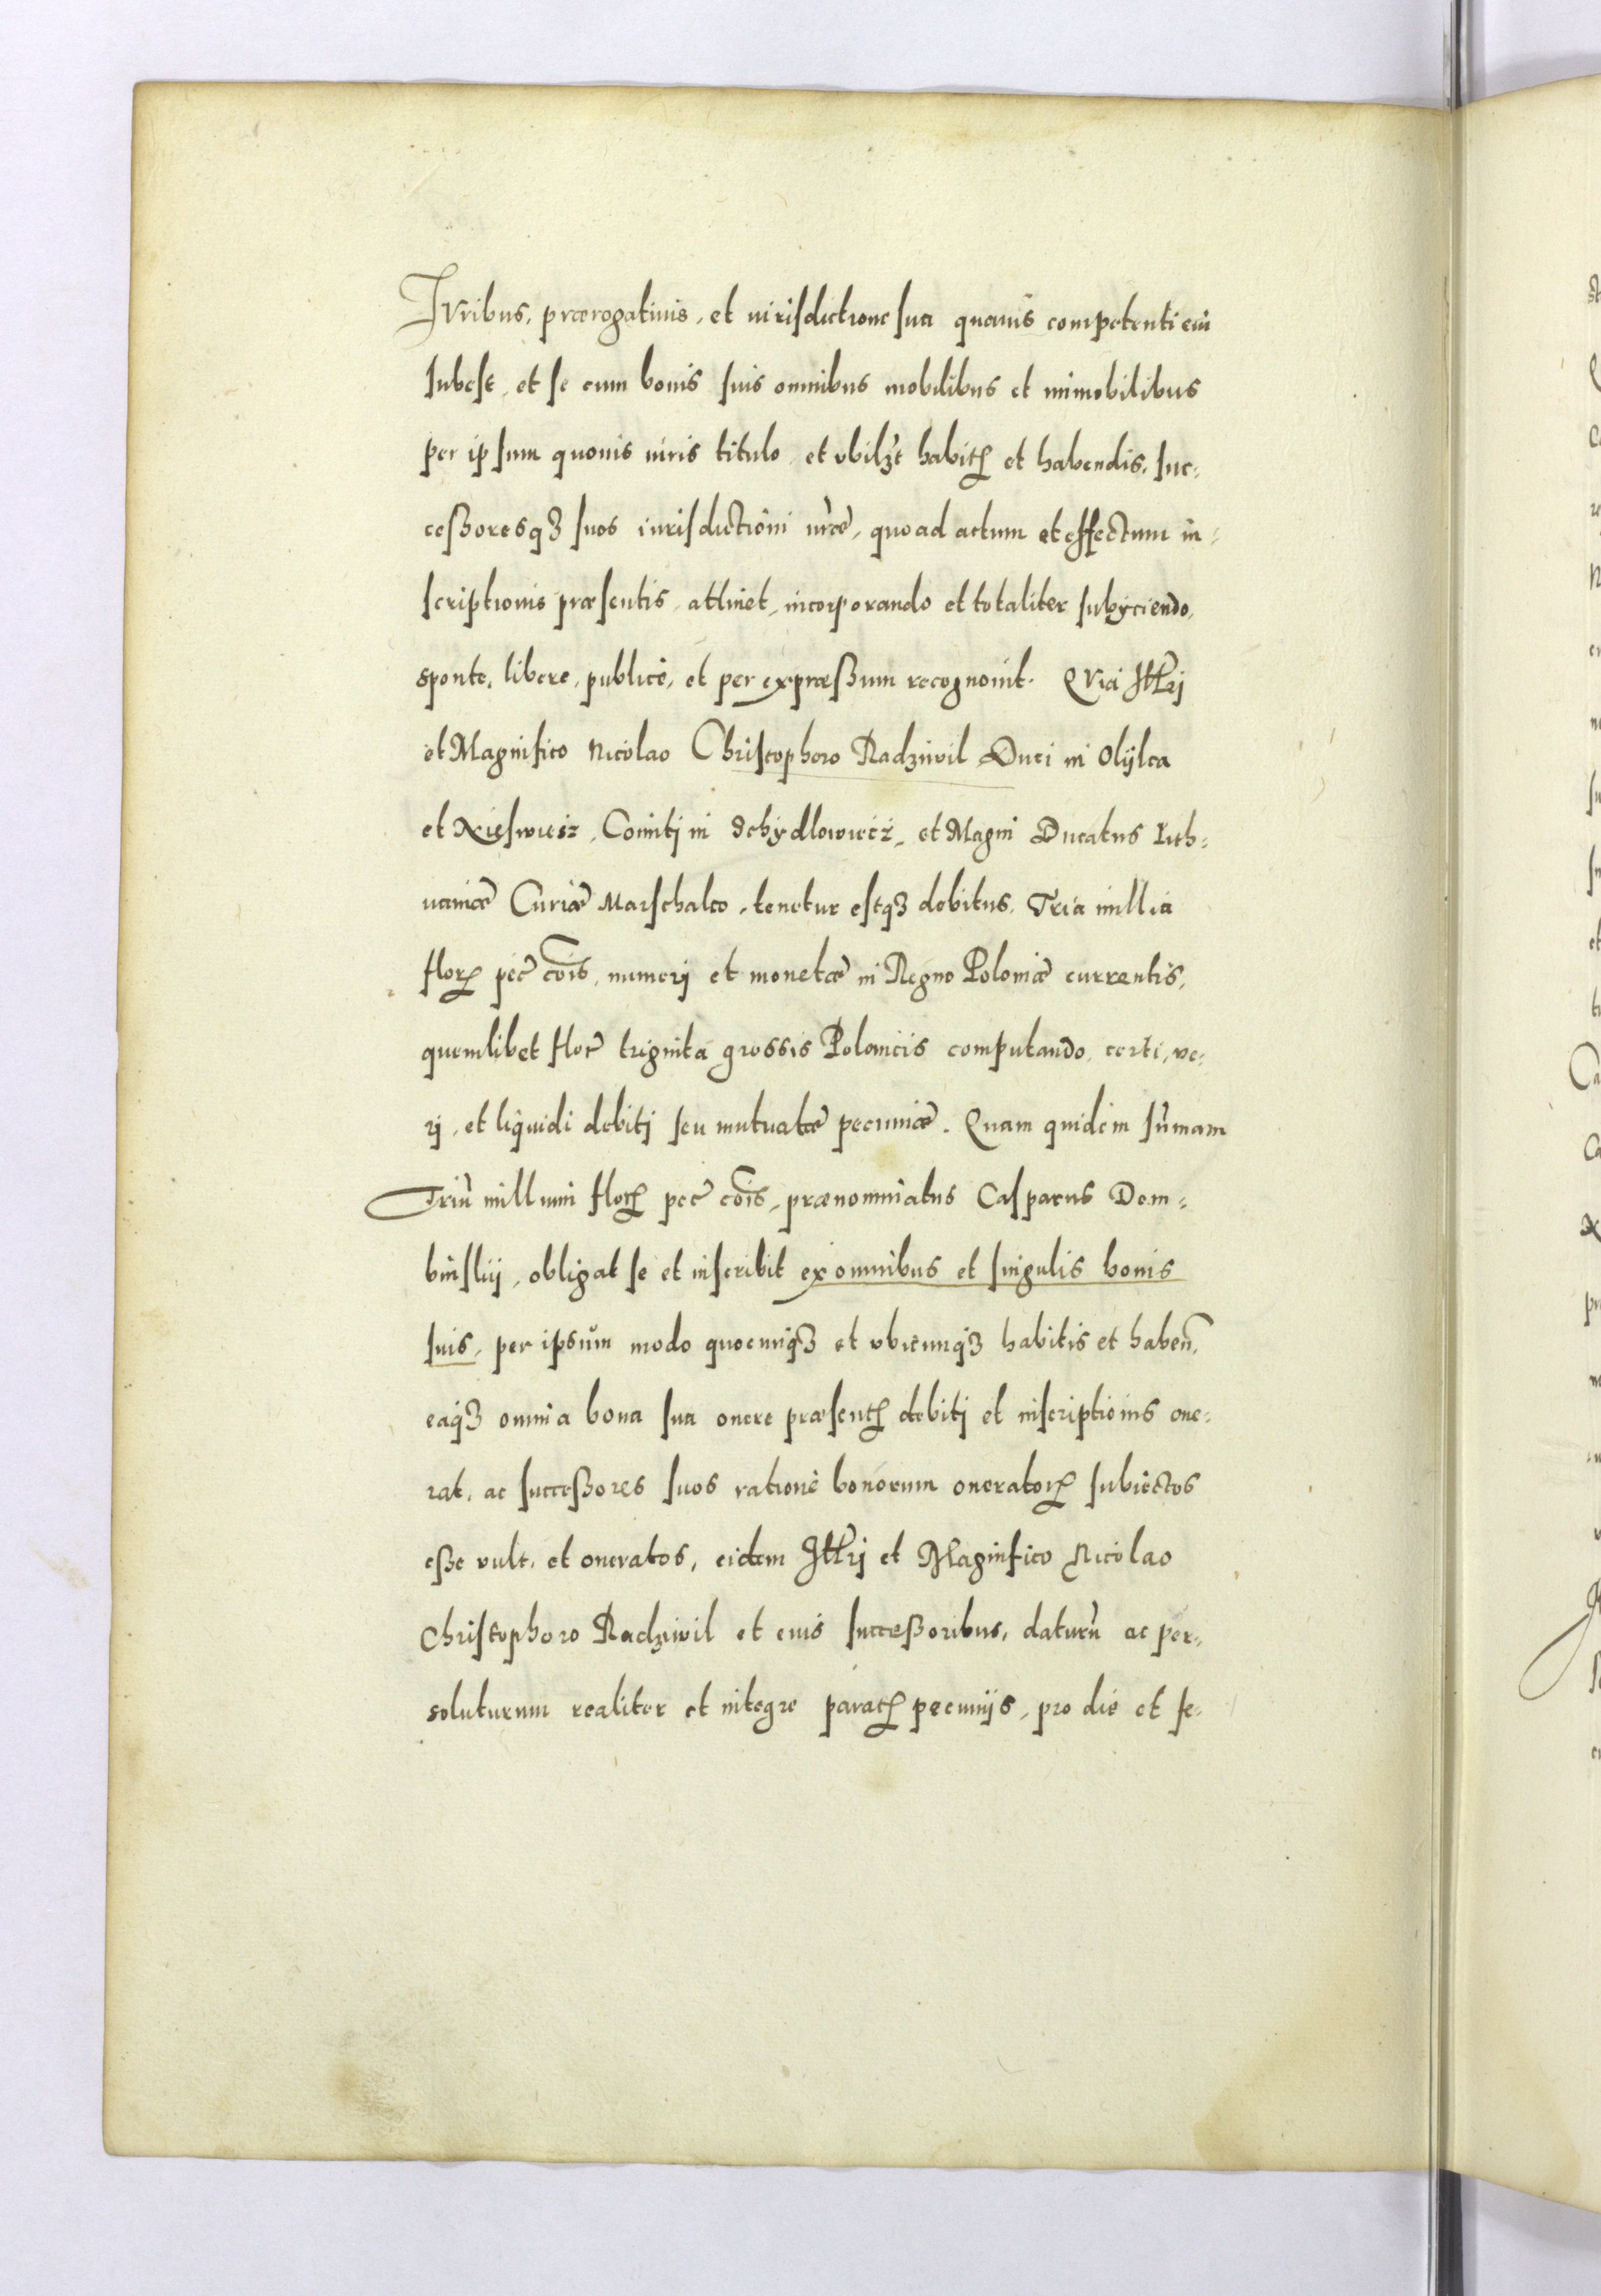 IVribus, prærogatiuis, et iurisdictione sua quauis competenti cui
subest, et se cum bonis suis omnibus mobilibus et immobilibus
per ipsum quouis iuris titulo et vbilꝫt habitꝭ et habendis, suc-
ceßoresqꝫ suos iurisdictioni nr̃æ, quoad actum et effectum in-
scriptionis præsentis, attinet, incorporando et totaliter subijciendo,
sponte, libere, publicè, et per expræßum recognouit. QVia Illr̃i
et Magnifico Nicolao Christophoro Radziwil Duci in Olijka
et Nieswiesz, Comiti in Schydlowiecz, et Magni Ducatus Lith-
uaniæ Curiæ Marschalco, tenetur estqꝫ debitus, Tria millia
florꝭ pec̃ cõis, numerj et monetæ in Regno Poloniæ currentis,
quemlibet flor̃ triginta grossis Polonicis computando, certi, ve-
rj, et liquidi debitj seu mutuatæ pecuniæ. Quam quidem sũmam
Triũ millium florꝭ pec̃ cõis, prænominatus Casparus Dem-
binskij, obligat se et inscribit ex omnibus et singulis bonis
suis, per ipsum modo quocunqꝫ et vbicunqꝫ habitis et habeñ,
eaqꝫ omnia bona sua onere præsentꝭ debitj et inscriptionis one-
rat, ac succeßores suos ratione bonorum oneratorꝭ subiectos
eße vult, et oneratos, eidem Illr̃j et Magnifico Nicolao
Christophoro Radziwil et eius succeßoribus, daturũ ac per-
soluturum realiter et integre paratꝭ pecunijs, pro die et fe-